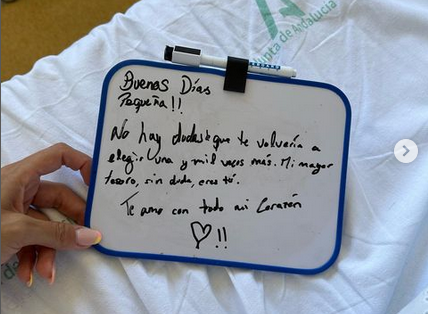 Junta de Andalucía
Buenos Días
Pequeña!!
No hay dudas de que te volvería a
elegir una y mil veces más. Mi mayor
tesoro, sin duda, eres tú.
Te amo con todo mi Corazón
!!